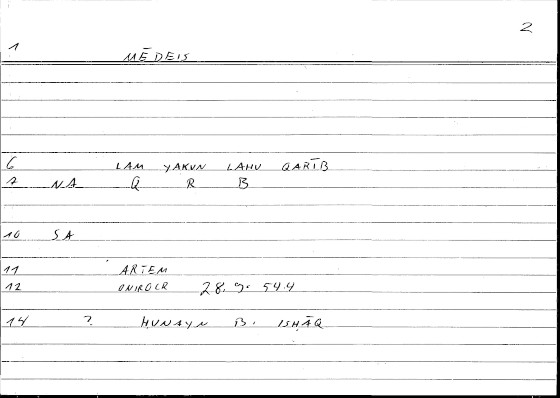 2
1 MĒDEIS
6 LAM YAKUN LAHU QARĪB
7 NA Q R B
10 SA
11 ARTEM
12 ONIROCR 28, 9. 54.4
14 ? ḤUNAYN B. ISḤĀQ